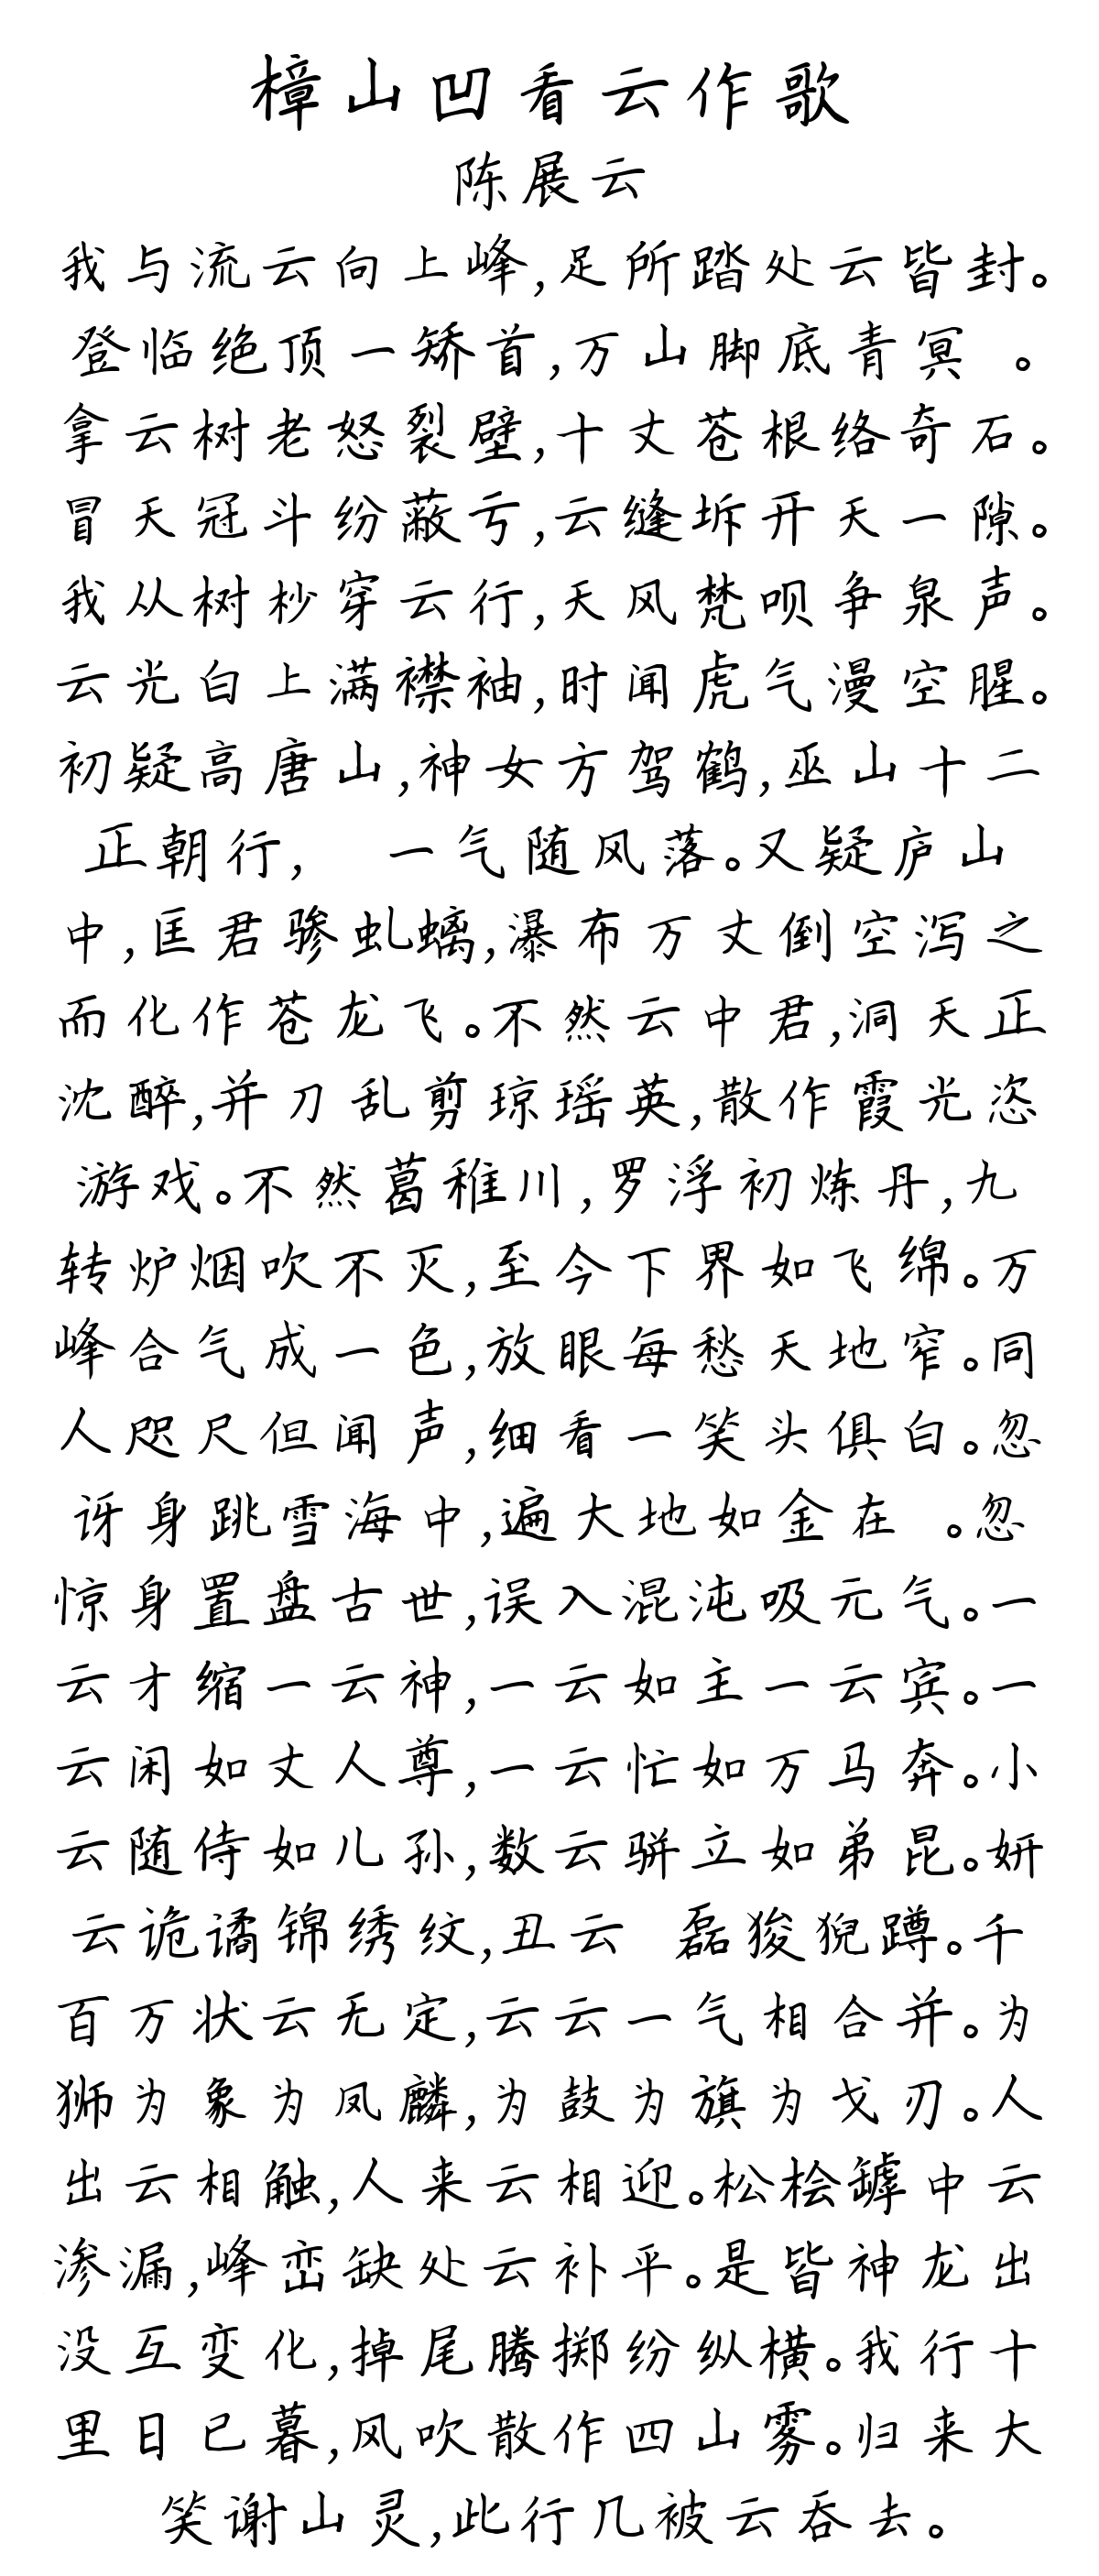 樟山凹看云作歌
陈展云
我与流云向上峰,足所踏处云皆封。
登临绝顶一矫首,万山脚底青冥 。
拿云树老怒裂壁,十丈苍根络奇石。
冒天冠斗纷蔽亏,云缝坼开天一隙。
我从树杪穿云行,天风梵呗争泉声。
云光白上满襟袖,时闻虎气漫空腥。
初疑高唐山,神女方驾鹤,巫山十二
正朝行, 一气随风落。又疑庐山
中,匡君骖虬螭,瀑布万丈倒空泻之
而化作苍龙飞。不然云中君,洞天正
沈醉,并刀乱剪琼瑶英,散作霞光恣
游戏。不然葛稚川,罗浮初炼丹,九
转炉烟吹不灭,至今下界如飞绵。万
峰合气成一色,放眼每愁天地窄。同
人咫尺但闻声,细看一笑头俱白。忽
讶身跳雪海中,遍大地如金在 。忽
惊身置盘古世,误入混沌吸元气。一
云才缩一云神,一云如主一云宾。一
云闲如丈人尊,一云忙如万马奔。小
云随侍如儿孙,数云骈立如弟昆。妍
云诡谲锦绣纹,丑云 磊狻猊蹲。千
百万状云无定,云云一气相合并。为
狮为象为凤麟,为鼓为旗为戈刃。人
出云相触,人来云相迎。松桧罅中云
渗漏,峰峦缺处云补平。是皆神龙出
没互变化,掉尾腾掷纷纵横。我行十
里日已暮,风吹散作四山雾。归来大
笑谢山灵,此行几被云吞去。